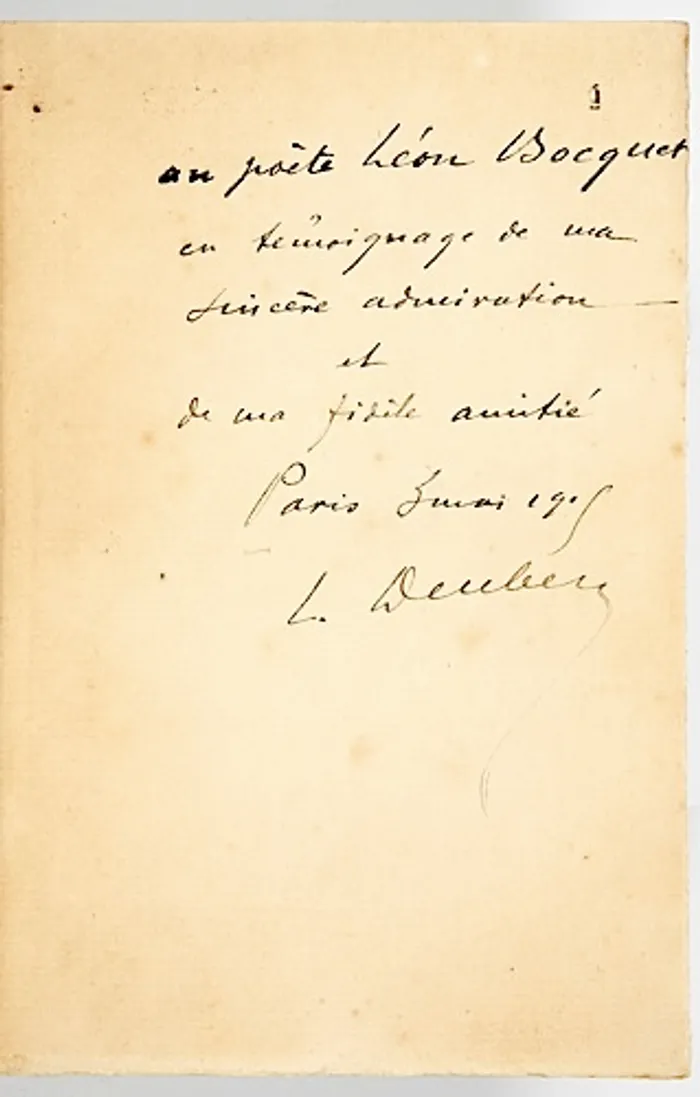 1
au poète Léon Bocquet
en témoignage de ma
sincère admiration —
et
de ma fidèle amitié
Paris 3 mai 1905
L. Deubel